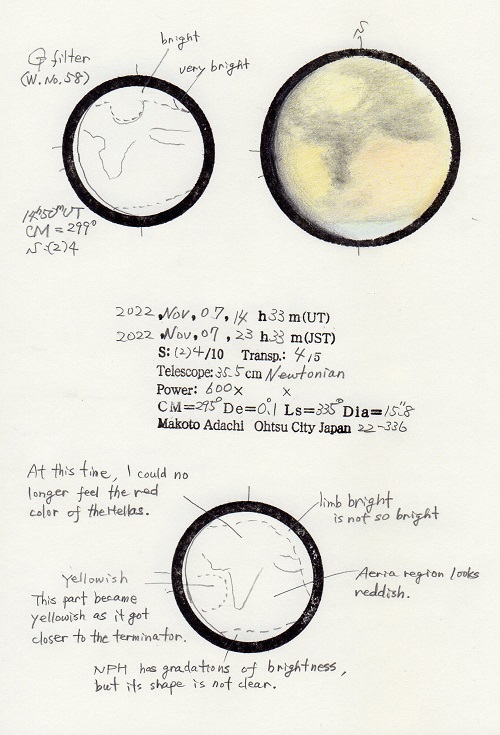 bright
G filter
(W.No.58)
very bright
S
14h50mUT
CM=299°
S:(2)4
2022, Nov, 07, 14 h33 m(UT)
2022, Nov, 07, 23 h33 m(JST)
S: (2)4/10 Transp.: 4/5
Telescope: 35.5 cm Newtonian
Power: 600× ×
CM=295° De=0.°1 Ls=335° Dia=15."8
Makoto Adachi Ohtsu City Japan 22-336
At this time, I could no
longer feel the red
color of the Hellas.
limb bright
is not so bright
Yellowish
This part became
yellowish as it got
closer to the terminator.
Aeria region looks
reddish.
NPH has gradations of brightness,
but its shape is not clear.